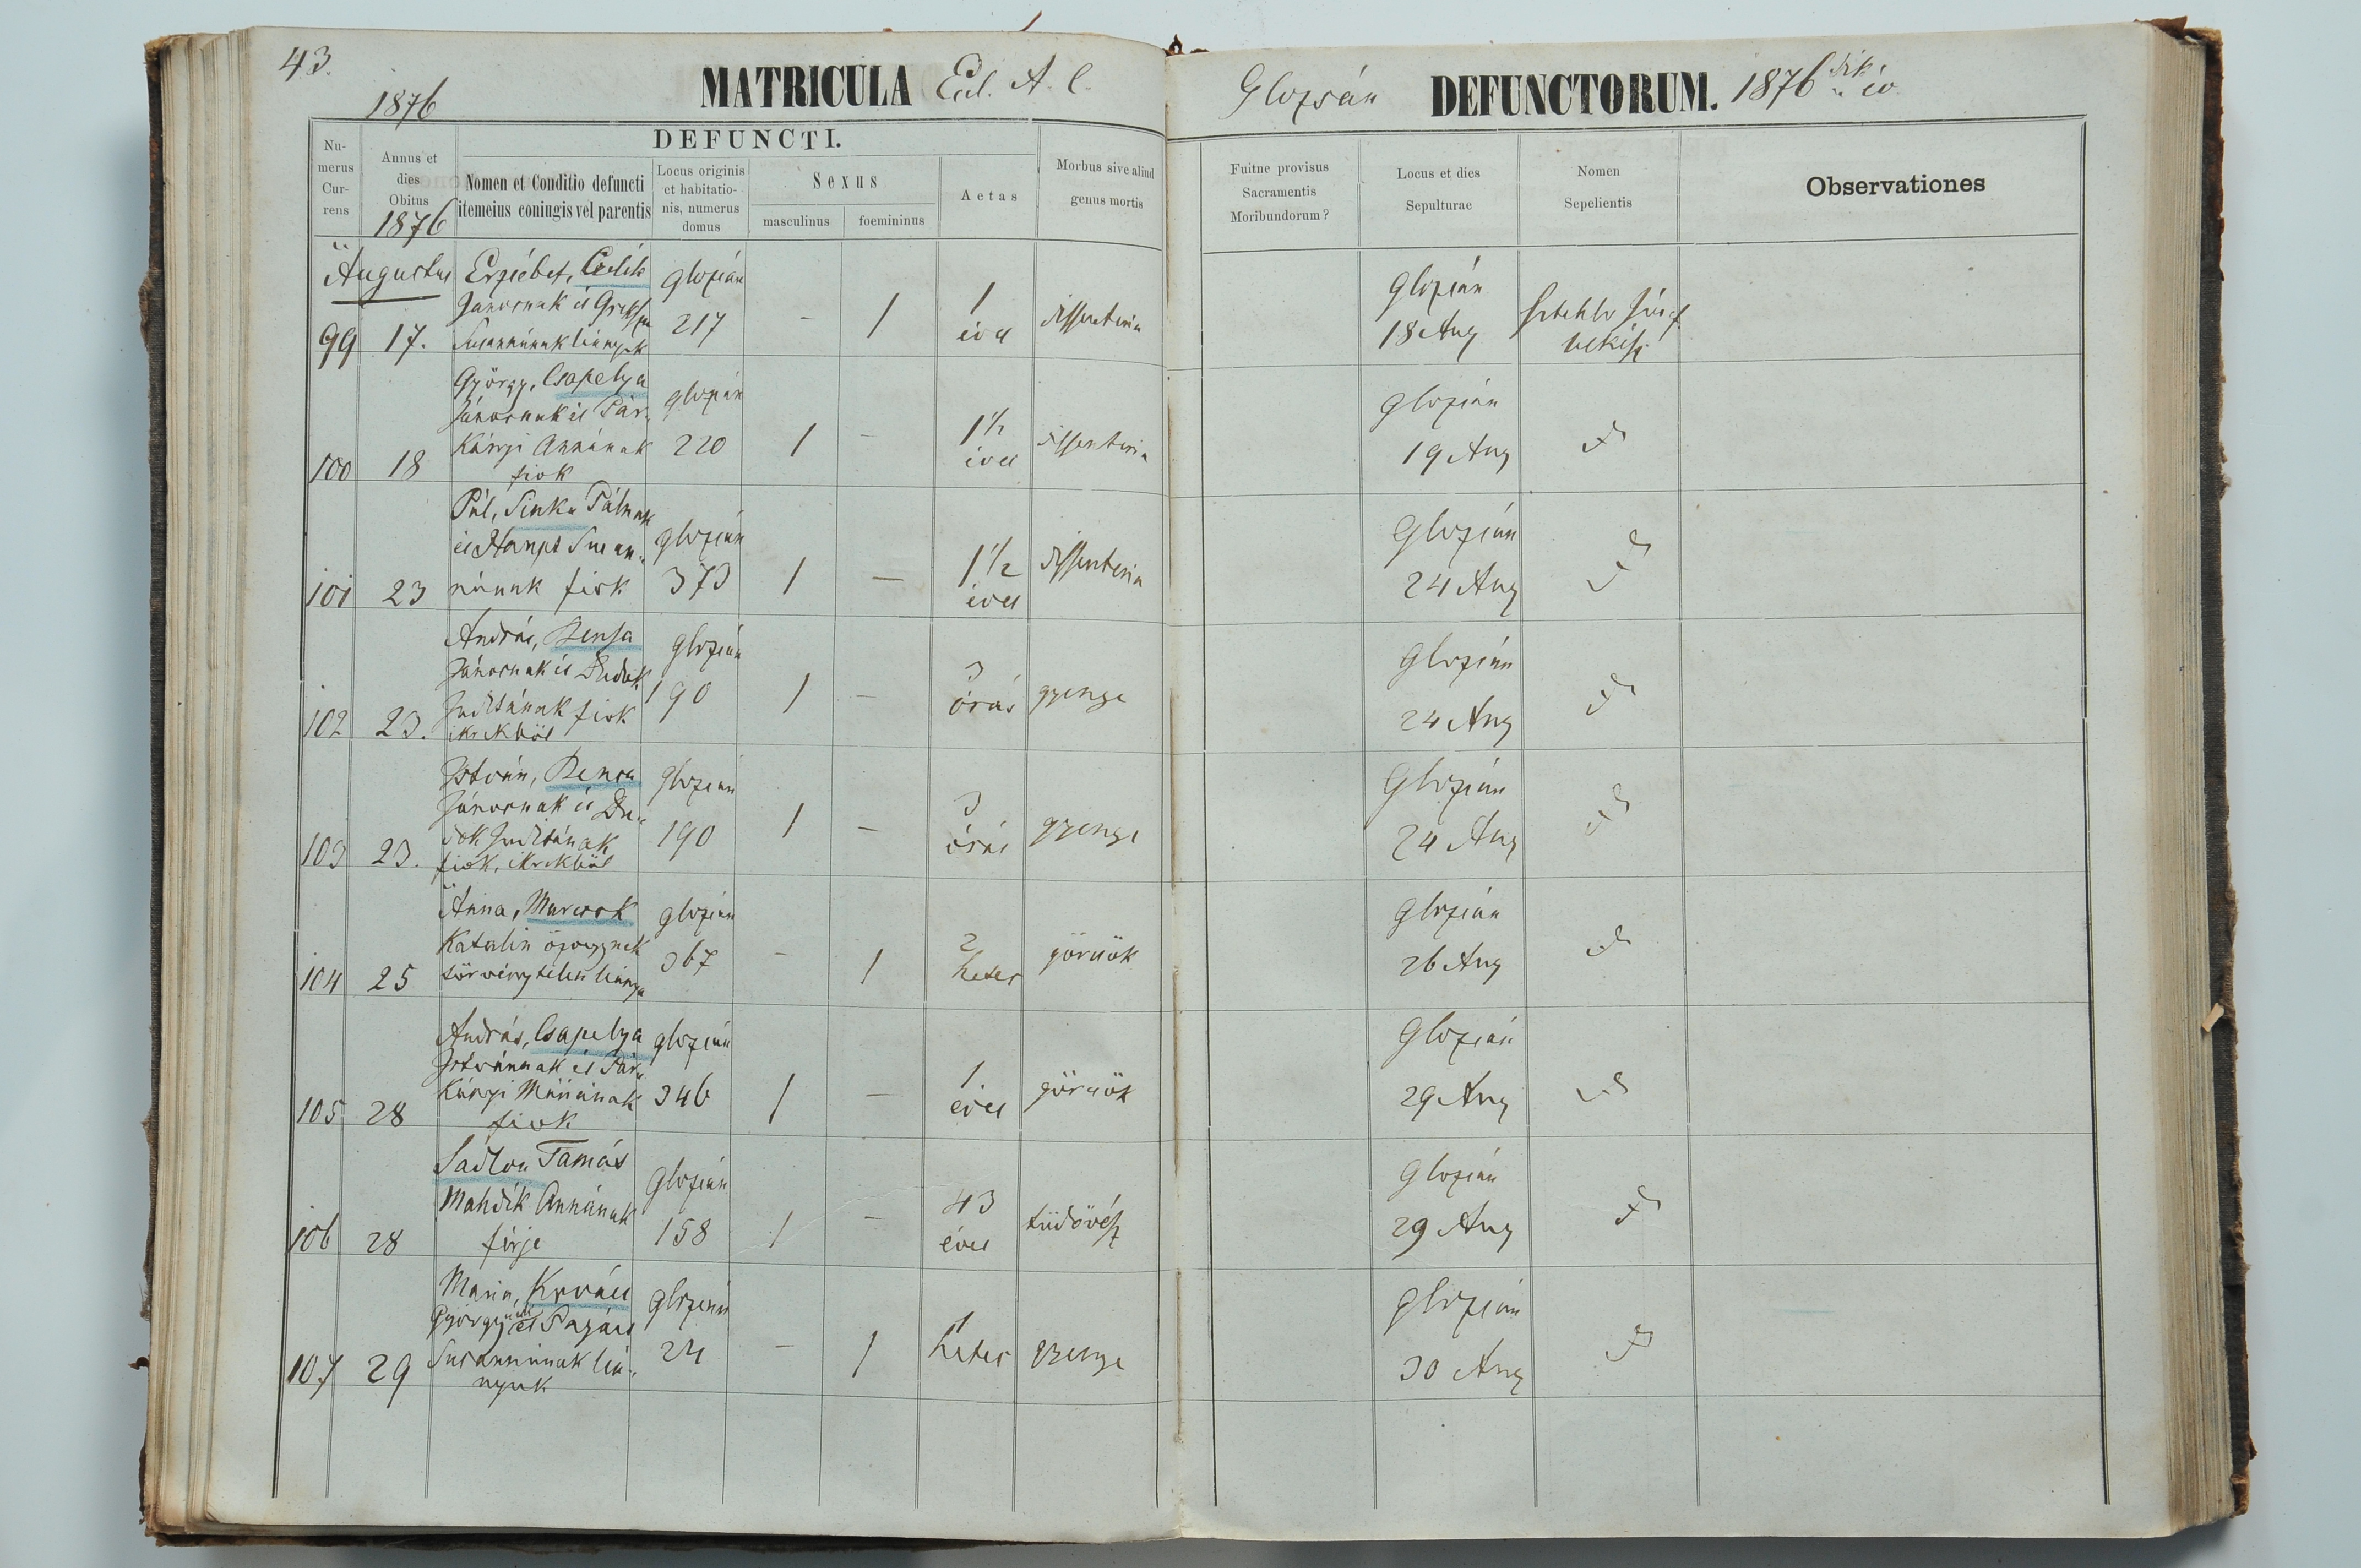 43.
1876
MATRICULA
A. C.
Glozsán DEFUNCTORUM. 1876 dik év
DEFUNCTI.
Numerus Currens
Annus et dies Obitus
1876
Nomen et Conditio defuncti
itemeius coniugis vel parentis
Locus originis et habitationis, numerus domus
Sexus
masculinus
foemininus
Aetas
Morbus sive aliud
genus mortis
Fuitne provisus
Sacramentis
Moribundorum?
Locus et dies
Sepulturae
Nomen
Sepelientis
Observationes
Augustus
99 17.
Erzsébet,
Jánosnak és
Susannának
Glozsán
217
- 1
1
éves
dissenteria
Glozsán
18 Aug
100 18
György, Csapelya
Jánosnak és Pár-
kányi Annának
fiok
Glozsán
220
1 -
1 1/2
éves
dissenteria
Glozsán
19 Aug
101 23
Pál, Sinka Pálnak
és Susan-
nának fiok
Glozsán
373
1 —
1 1/2
éves
dissenteria
Glozsán
24 Aug
102 23.
András, Bensa
Jánosnak és Dudok
Juditának fiok
ikrekből
Glozsán
190
1 -
3
órás
gyenge
Glozsán
24 Aug
103 23.
István, Bensa
Jánosnak és Du-
dok Juditának
fiok, ikrekből
Glozsán
190
1 -
3
órás
gyenge
Glozsán
24 Aug
104 25
Anna, Marcsok
Katalin özvegynek
törvénytelen leánya
Glozsán
367
- 1
2
hetes
görcsök
Glozsán
26 Aug
105 28
András, Csapelya
Istvánnak és Pár-
kányi Máriának
fiok
Glozsán
346
1 —
1.
éves
görcsök
Glozsán
29 Aug
106 28
Tamás
Annának
férje
Glozsán
158
1 -
43
éves
tüdővész
Glozsán
29 Aug
107 29
Maria, Kováts
György és
Susannának leá-
nyuk
Glozsán
24
- 1
1
hetes
gyenge
Glozsán
30 Aug